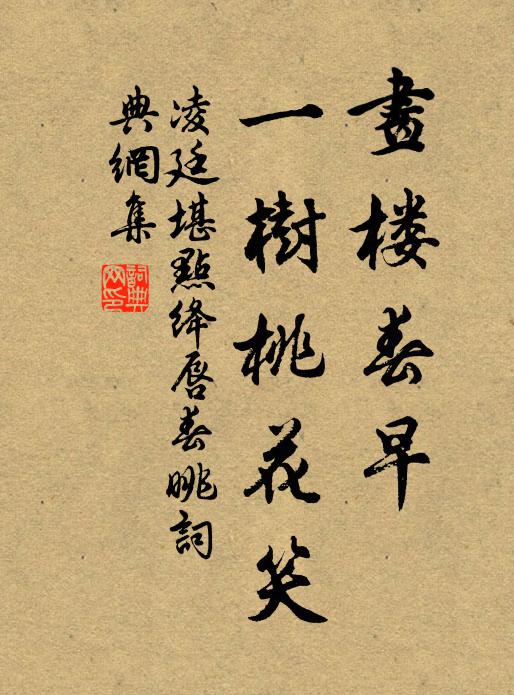 畫楼春早
一樹桃花笑
凌廷堪點绛唇春眺詞
典網集
詞典网印